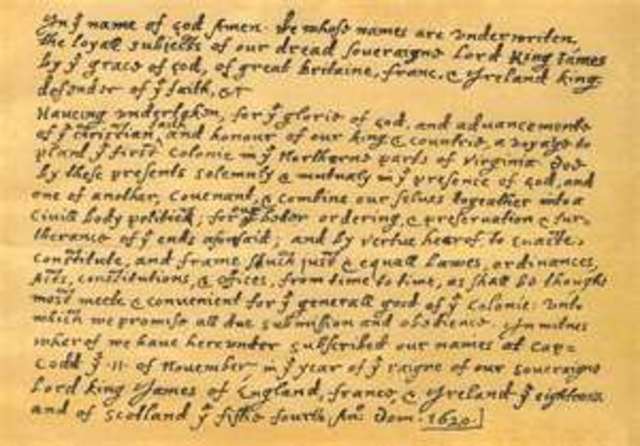 In yͤ name of god Amen. We whose names are underwriten,
the loyall subjects of our dread soveraigne Lord King James
by yͤ grace of god, of great britaine, franc, & Ireland king,
defender of yͤ faith, &c
Haveing undertaken, for yͤ glorie of god, and advancemente
of yͤ christian faith and honour of our king & countrie, a voyage to
plant yͤ first colonie in yͤ Northerne parts of virginia doe
by these presents solemnly & mutualy in yͤ presence of god, and
one of another, covenant, & combine our selves togeather into a
Civill body politick; for our better ordering, & preservation & fur=
therance of yͤ ends aforesaid; and by vertue hearof to enacte,
constitute, and frame shuch just & equall Lawes, ordinances,
Acts, constitutions, & offices, from time to time, as shall be thought
most meete & convenient for yͤ generall good of yͤ colonie: unto
which we promise all due submission and obedience. In witnes
wherof we have hereunder subscribed our names at Cap=
Codd yͤ ·11· of November in yͤ year of yͤ raigne of our soveraigne
Lord king James of England, france, & Ireland yͤ eighteene
and of scotland yͤ fiftie fourth. Anͦ: Dom. 1620.